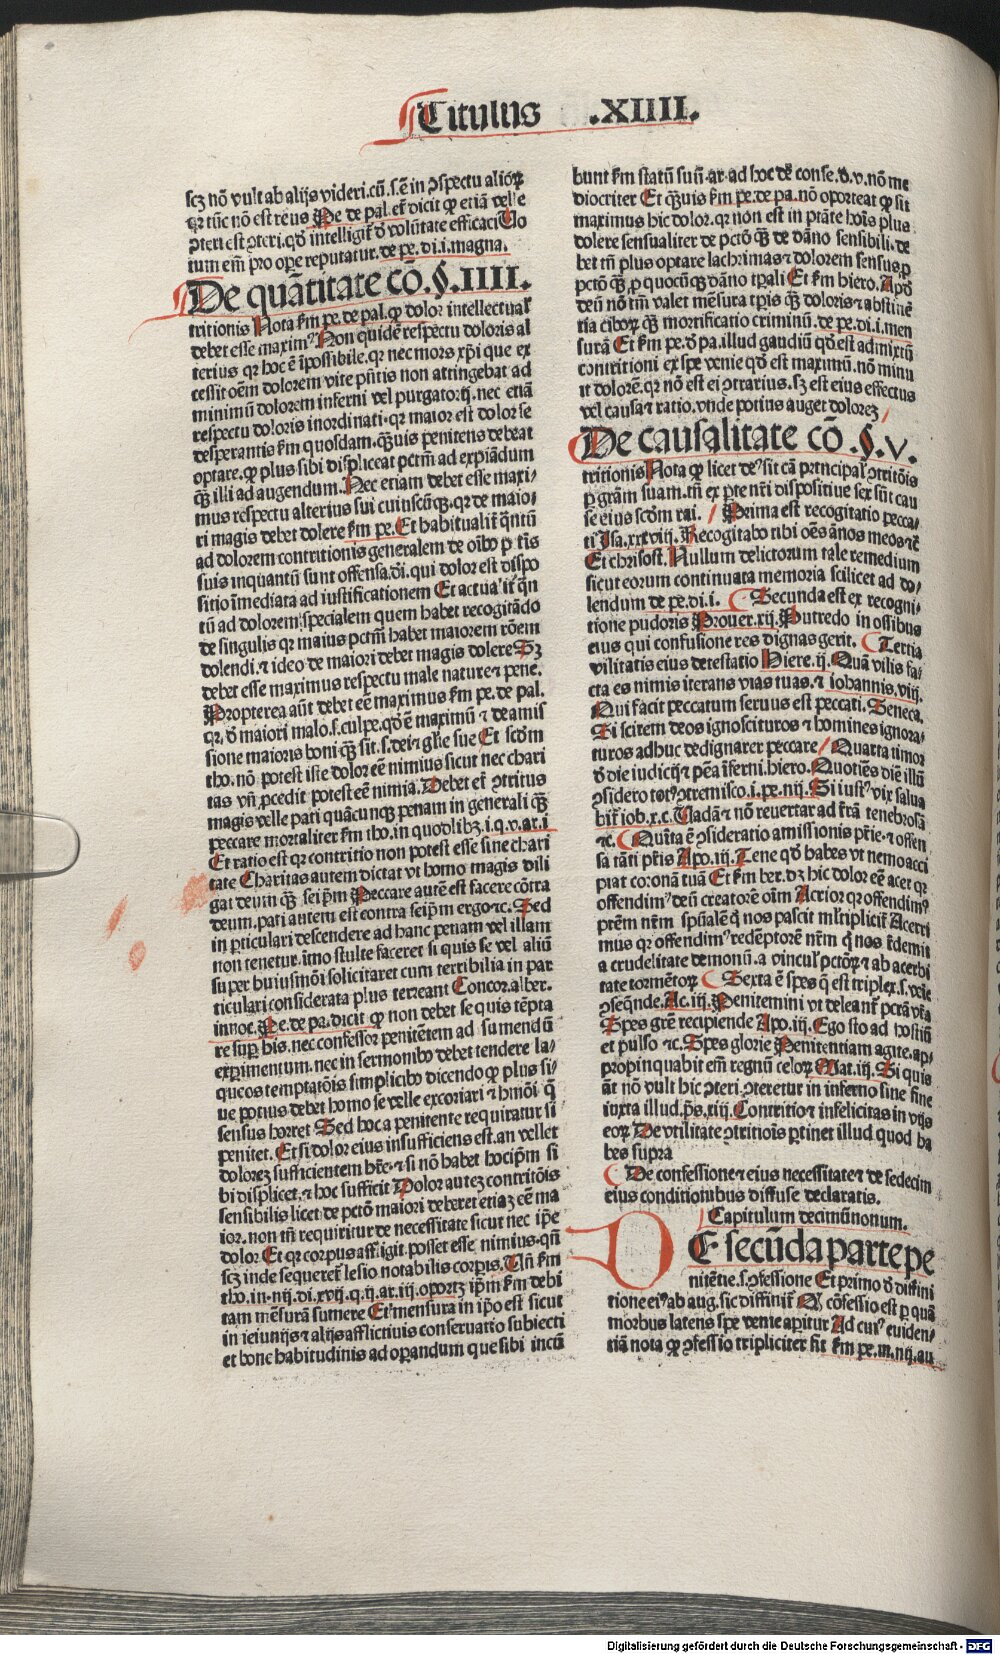 Titulus .XIIII.
scz nō vult ab alijs videri.cū.s.ē in ꝯspectu alioꝝ
qꝛ tūc nō est reus Pe de pal.et̄ dicit ꝙ etiā velle
ꝯteri est ꝯteri.qd̄ intelligit̄ d̄ volūtate efficaci Uo
tum em̄ pro oꝑe reputatur.de pe.di.i.magna.
De quātitate cō.§.IIII.
tritionis Nota fm pe.de pal.ꝙ dolor intellectual̄
debet esse maximꝰ Non quidē respectu doloris al
terius qꝛ hoc ē īpossibile.qꝛ nec mors xp̄i que ex
cessit oēm dolorem vite pn̄tis non attringebat ad
minimū dolorem inferni vel purgatorij.nec etiā
respectu doloris inordinati.qꝛ maior est dolor se
desperantis fm quosdam.qᷓuis penitens debeat
optare.ꝙ plus sibi displiceat pctm̄ ad expiādum
qᷓ illi ad augendum. Nec etiam debet esse maxi-
mus respectu alterius sui cuiuscūqꝫ.qꝛ de maio-
ri magis debet dolere fm pe. Et habitualit̄ qn̄tū
ad dolorem contritionis generalem de oībꝰ p̄ t̄is
suis inquantū sunt offensa.dī.qui dolor est dispo
sitio īmediata ad iustificationem Et actualit̄ qn̄
tū ad dolorem specialem quem habet recogitādo
de singulis qꝛ maius pctm̄ habet maiorem rōem
dolendi.⁊ ideo de maiori debet magis dolere Sꝫ
debet esse maximus respectu male nature ⁊ pene.
Propterea aūt debet eē maximus fm pe.de pal.
qꝛ d̄ maiori malo.s.culpe.qd̄ ē maximū ⁊ de amis
sione maioris boni qᷓ sit.s.dei ⁊ gl̄ie sue Et scd̄m
tho.nō potest iste dolor eē nimius sicut nec chari
tas vn̄ ꝓcedit potest eē nimia. Debet et̄ ꝯtritus
magis velle pati quācunqꝫ penam in generali qᷓ
peccare mortaliter fm tho.in quodlibꝫ.i.q.v.ar.i
Et ratio est qꝛ contritio non potest esse sine chari
tate Charitas autem dictat vt homo magis dili
gat deum qᷓ seip̄m Peccare autē est facere cōtra
deum.pati autem est contra seip̄m ergo ⁊c. Sed
in ꝑticulari descendere ad hanc penam vel illam
non tenetur.imo stulte faceret si quis se vel aliū
super huiusmōi solicitaret cum terribilia in par
ticulari considerata plus terreant Concor.alber.
innoc. Pe.de pa.dicit ꝙ non debet se quis tēpta
re suꝑ his.nec confessor penitētem ad sumendū
exꝑimentum.nec in sermonibꝰ debet tendere la-
queos temptatōis simplicibꝰ dicendo ꝙ plus si-
ue potius debet homo se velle excoriari ⁊ hmōi qᷓ
sensus horret Sed hoc a penitente requiratur si
penitet. Et si dolor eius insufficiens est.an vellet
dolorez sufficientem hr̄e.⁊ si nō habet hoc ip̄m si
bi displicet.⁊ hoc sufficit Dolor autez contritōis
sensibilis licet de pctō maiori deberet etiaꝫ eē ma
ior.non tn̄ requiritur de necessitate sicut nec ip̄e
dolor Et qꝛ corpus affligit posset esse nimius.qn̄
scꝫ inde sequeret̄ lesio notabilis corpis. Tn̄ fm
tho.in.iiij.di.xvij.q.ij.ar.iij.oportꝫ ip̄m fm debi
tam mēsurā sumere Et mensura in ip̄o est sicut
in ieiunijs ⁊ alijs afflictiuis conseruatio subiecti
et bone habitudinis ad oꝑandum que sibi incū
bunt fm statū suū.ar.ad hoc de conse.d.v.nō me
diocriter Et qᷓuis fm pe.de pa.nō oporteat ꝙ sit
maximus hic dolor.qꝛ non est in ptāte hoīs plus
dolere sensualiter de pctō qᷓ de dāno sensibili.de
bet tn̄ plus optare lachrimas ⁊ dolorem sensus ꝓ
pctō qᷓ ꝓ quocūqꝫ dāno tꝑali Et fm hiero. Apd̄
deū nō tm̄ valet mēsura tꝑis qᷓ doloris ⁊ abstinē
tia ciboꝝ qᷓ mortificatio criminū.de pe.di.i.men
surā Et fm pe.d̄ pa.illud gaudiū qd̄ est admixtū
contritioni ex spe venie qd̄ est maximū.nō minu
it dolorē.qꝛ nō est ei ꝯtrarius.sꝫ est eius effectus
vel causa ⁊ ratio.vnde potius auget dolorez
De causalitate cō.§.v.
tritionis Nota ꝙ licet deꝰ sit cā principal̄ ꝯtritōis
ꝑ grām suam.tn̄ ex ꝑte nr̄i dispositiue sex sūt cau
se eius scd̄m rai. Prima est recogitatio pecca-
ti Isa.xxxviij. Recogitabo tibi oēs ānos meos ⁊c̄
Et chrisost. Nullum delictorum tale remedium
sicut eorum continuata memoria scilicet ad do-
lendum de pe.di.i. Secunda est ex recogni-
tione pudoris Prouer.xij. Putredo in ossibus
eius qui confusione res dignas gerit. Tertia
vilitatis eius detestatio Hiere.ij. Quā vilis fa-
cta es nimis iterans vias tuas.⁊ iohannis.viij.
Qui facit peccatum seruus est peccati. Seneca.
Si scirem deos ignoscituros ⁊ homines ignora-
turos adhuc dedignarer peccare Quarta timor
d̄ die iudicij ⁊ pēa īferni.hiero. Quotiēs diē illū
ꝯsidero totꝰ ꝯtremisco.i.pe.iiij. Si iustꝰ vix salua
bit̄ iob.x.c. Uadā ⁊ nō reuertar ad t̄rā tenebrosā
⁊c. Quīta ē ꝯsideratio amissionis pr̄ie ⁊ offen
sa tāti pr̄is Apo.iij. Tene qd̄ habes vt nemo acci
piat coronā tuā Et fm ber.dꝫ hic dolor eē acer qꝛ
offendimꝰ deū creatorē oīm Acrior qꝛ offendimꝰ
prēm nr̄m spūalē qͥ nos pascit ml̄tiplicit̄ Acerri
mus qꝛ offendimꝰ redēptorē nr̄m qͥ nos redemit
a crudelitate demonū.a vincul̄ pctōꝝ ⁊ ab acerbi
tate tormētoꝝ Sexta ē spes q̄ est triplex.s.veīe
ꝯseq̄nde. Ac.iij. Penitemini vt deleant̄ pctā vr̄a
Spes grē recipiende Apo.iij. Ego sto ad hostiū
et pulso ⁊c. Spes glorie Penitentiam agite.ap-
propinquabit em̄ regnū celoꝝ Mat.iij. Si quis
āt nō vult hic ꝯteri.ꝯteretur in inferno sine fine
iuxta illud.ps.xiij. Contritio ⁊ infelicitas in vijs
eoꝝ De vtilitate ꝯtritiōis ꝑtinet illud quod ha
bes supra
De confessione ⁊ eius necessitate ⁊ de sedecim
eius conditionibus diffuse declaratis.
Capitulum decimūnonum.
DE secūda parte pe
nitētie.s.ꝯfessione Et primo d̄ diffini
tione eiꝰ ab aug.sic diffinit̄ Qꝛ cōfessio est ꝑ quā
morbus latens spe venie aꝑitur Ad cuiꝰ euiden-
tiā nota ꝙ ꝯfessio tripliciter fit fm pe.in.iiij.au
Digitalisierung gefördert durch die Deutsche Forschungsgemeinschaft - DFG